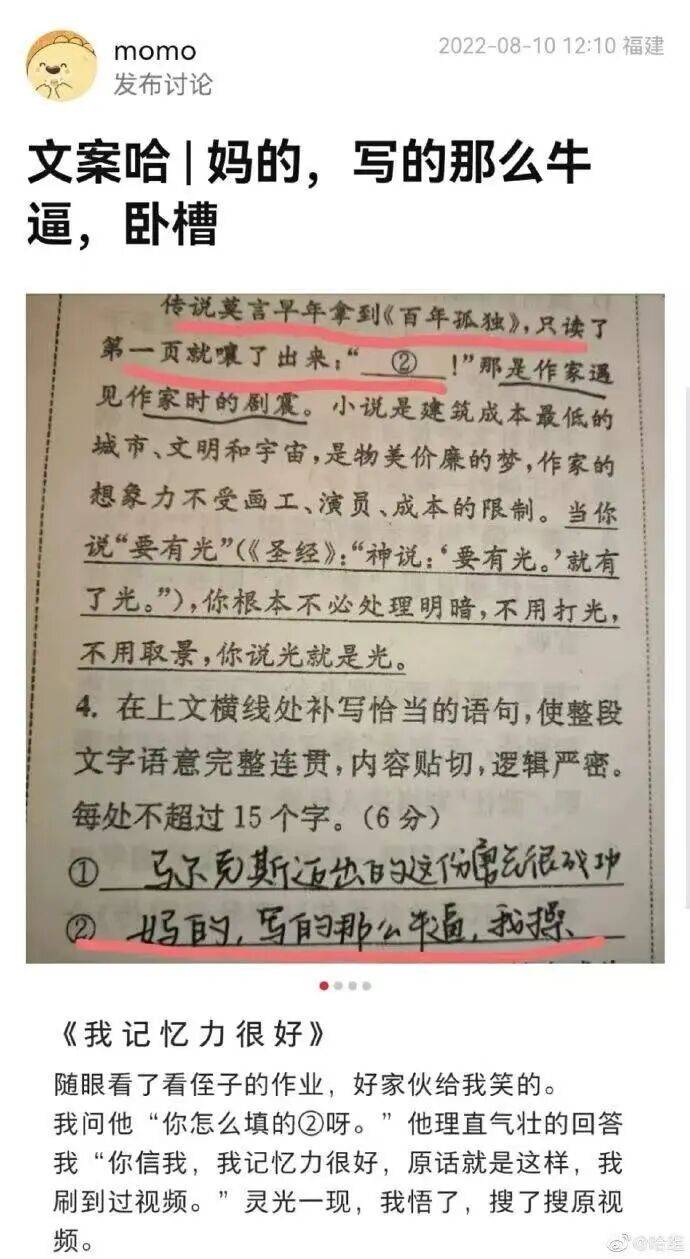 momo
2022-08-10 12:10 福建
发布讨论
文案哈 | 妈的，写的那么牛
逼，卧槽
传说莫言早年拿到《百年孤独》，只读了
第一页就嚷了出来：“ ② ！”那是作家遇
见作家时的剧震。小说是建筑成本最低的
城市、文明和宇宙，是物美价廉的梦，作家的
想象力不受画工、演员、成本的限制。当你
说“要有光”（《圣经》：“神说：‘要有光。’就有
了光。”），你根本不必处理明暗，不用打光，
不用取景，你说光就是光。
4. 在上文横线处补写恰当的语句，使整段
文字语意完整连贯，内容贴切，逻辑严密。
每处不超过 15 个字。（6 分）
① 马尔克斯迈出的这份很成功
② 妈的，写的那么牛逼，我操
《我记忆力很好》
随眼看了看侄子的作业，好家伙给我笑的。
我问他“你怎么填的②呀。”他理直气壮的回答
我“你信我，我记忆力很好，原话就是这样，我
刷到过视频。”灵光一现，我悟了，搜了搜原视
频。